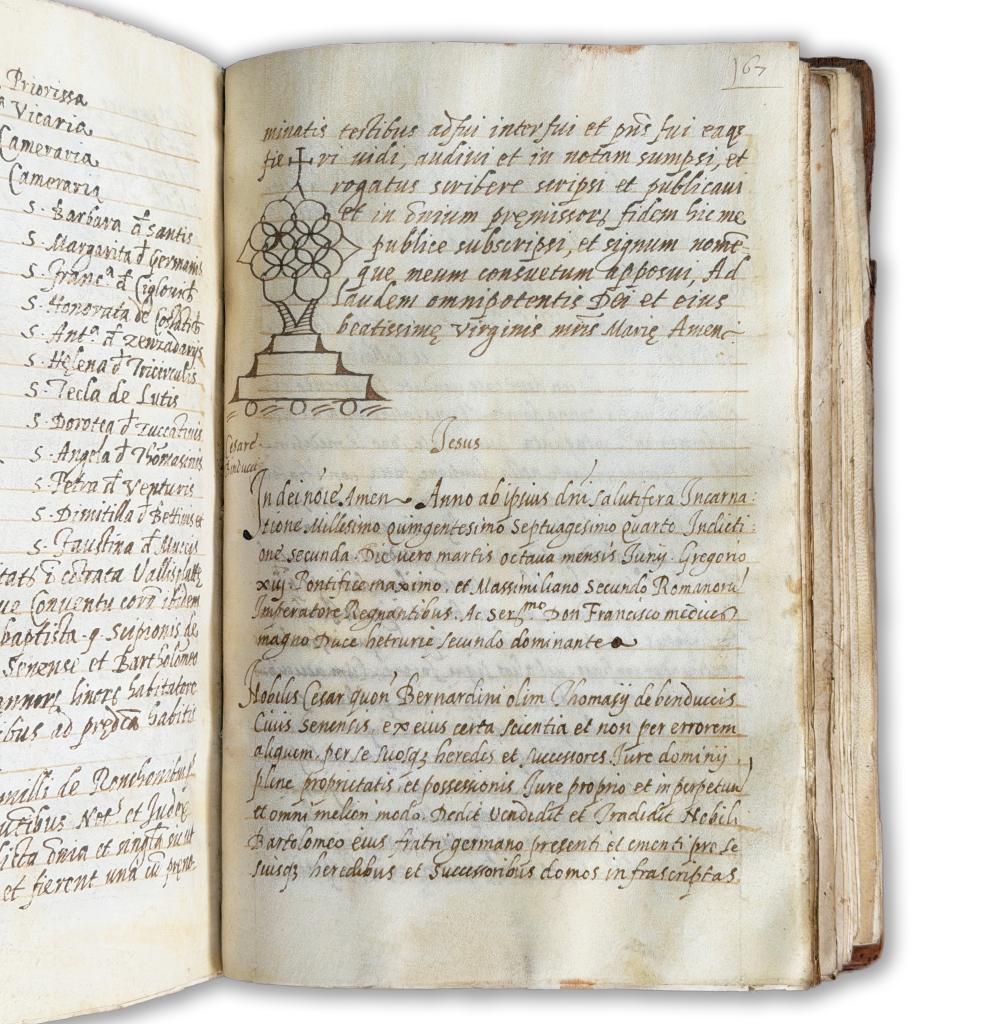 Priorissa
Vicaria
Cameraria
Cameraria
S. Barbara đ Santis
S. Margarita đ Germanis
S. Franc.ª đ
S. Honorata de
S. Ant.ª đ
S. Helena đ
S. Tecla de Lutis
S. Dorotea đ Zuccatinis
S. Angela đ Thomasinis
S. Petra đ Venturis
S. Dimitilla đ Bettinis et
S. Faustina đ Mutiis
Conventu ibidem
baptista q. Scipionis de
Senense et Bartholomeo
habitatore
ad prędca habitis
de
Not.s et Judex
dnia et
et fierent una cū
167
minatis testibus adfui interfui et pns fui eaqȝ
fieri vidi, audivi et in notam sumpsi, et
rogatus scribere scripsi et publicavi
et in ōnium pręmissorȝ fidem hic me
publice subscripsi, et signum nomē
que meum consuetum apposui, Ad
laudem omnipotentis Dei et eius
beatissimę Virginis mris Marię Amen
Cesare
Binducci
Jesus
In dei noie Amen Anno ab ipsius dni salutifera Incarna:
tione Millesimo quingentesimo Septuagesimo quarto Indicti:
one secunda Die vero martis octava mensis Junij Gregorio
xiij Pontifice maximo, et Massimiliano Secundo Romanorū
Imperatore Regnantibus. Ac Ser.mo Don Francisco medices
magno Duce hetrurie secundo dominante
Nobilis Cesar quon Bernardini olim Thomasij de binduccis
Civis Senensis, ex eius certa scientia et non per errorem
aliquem, per se suosqȝ heredes et successores Jure dominij,
plene proprietatis, et possessionis Jure proprio et in perpetuū
et omni meliori modo. Dedit Vendidit et Tradidit Nobili
Bartolomeo eius fratri germano presenti et ementi pre se
suisqȝ heredibus et Successoribus domos infrascriptas